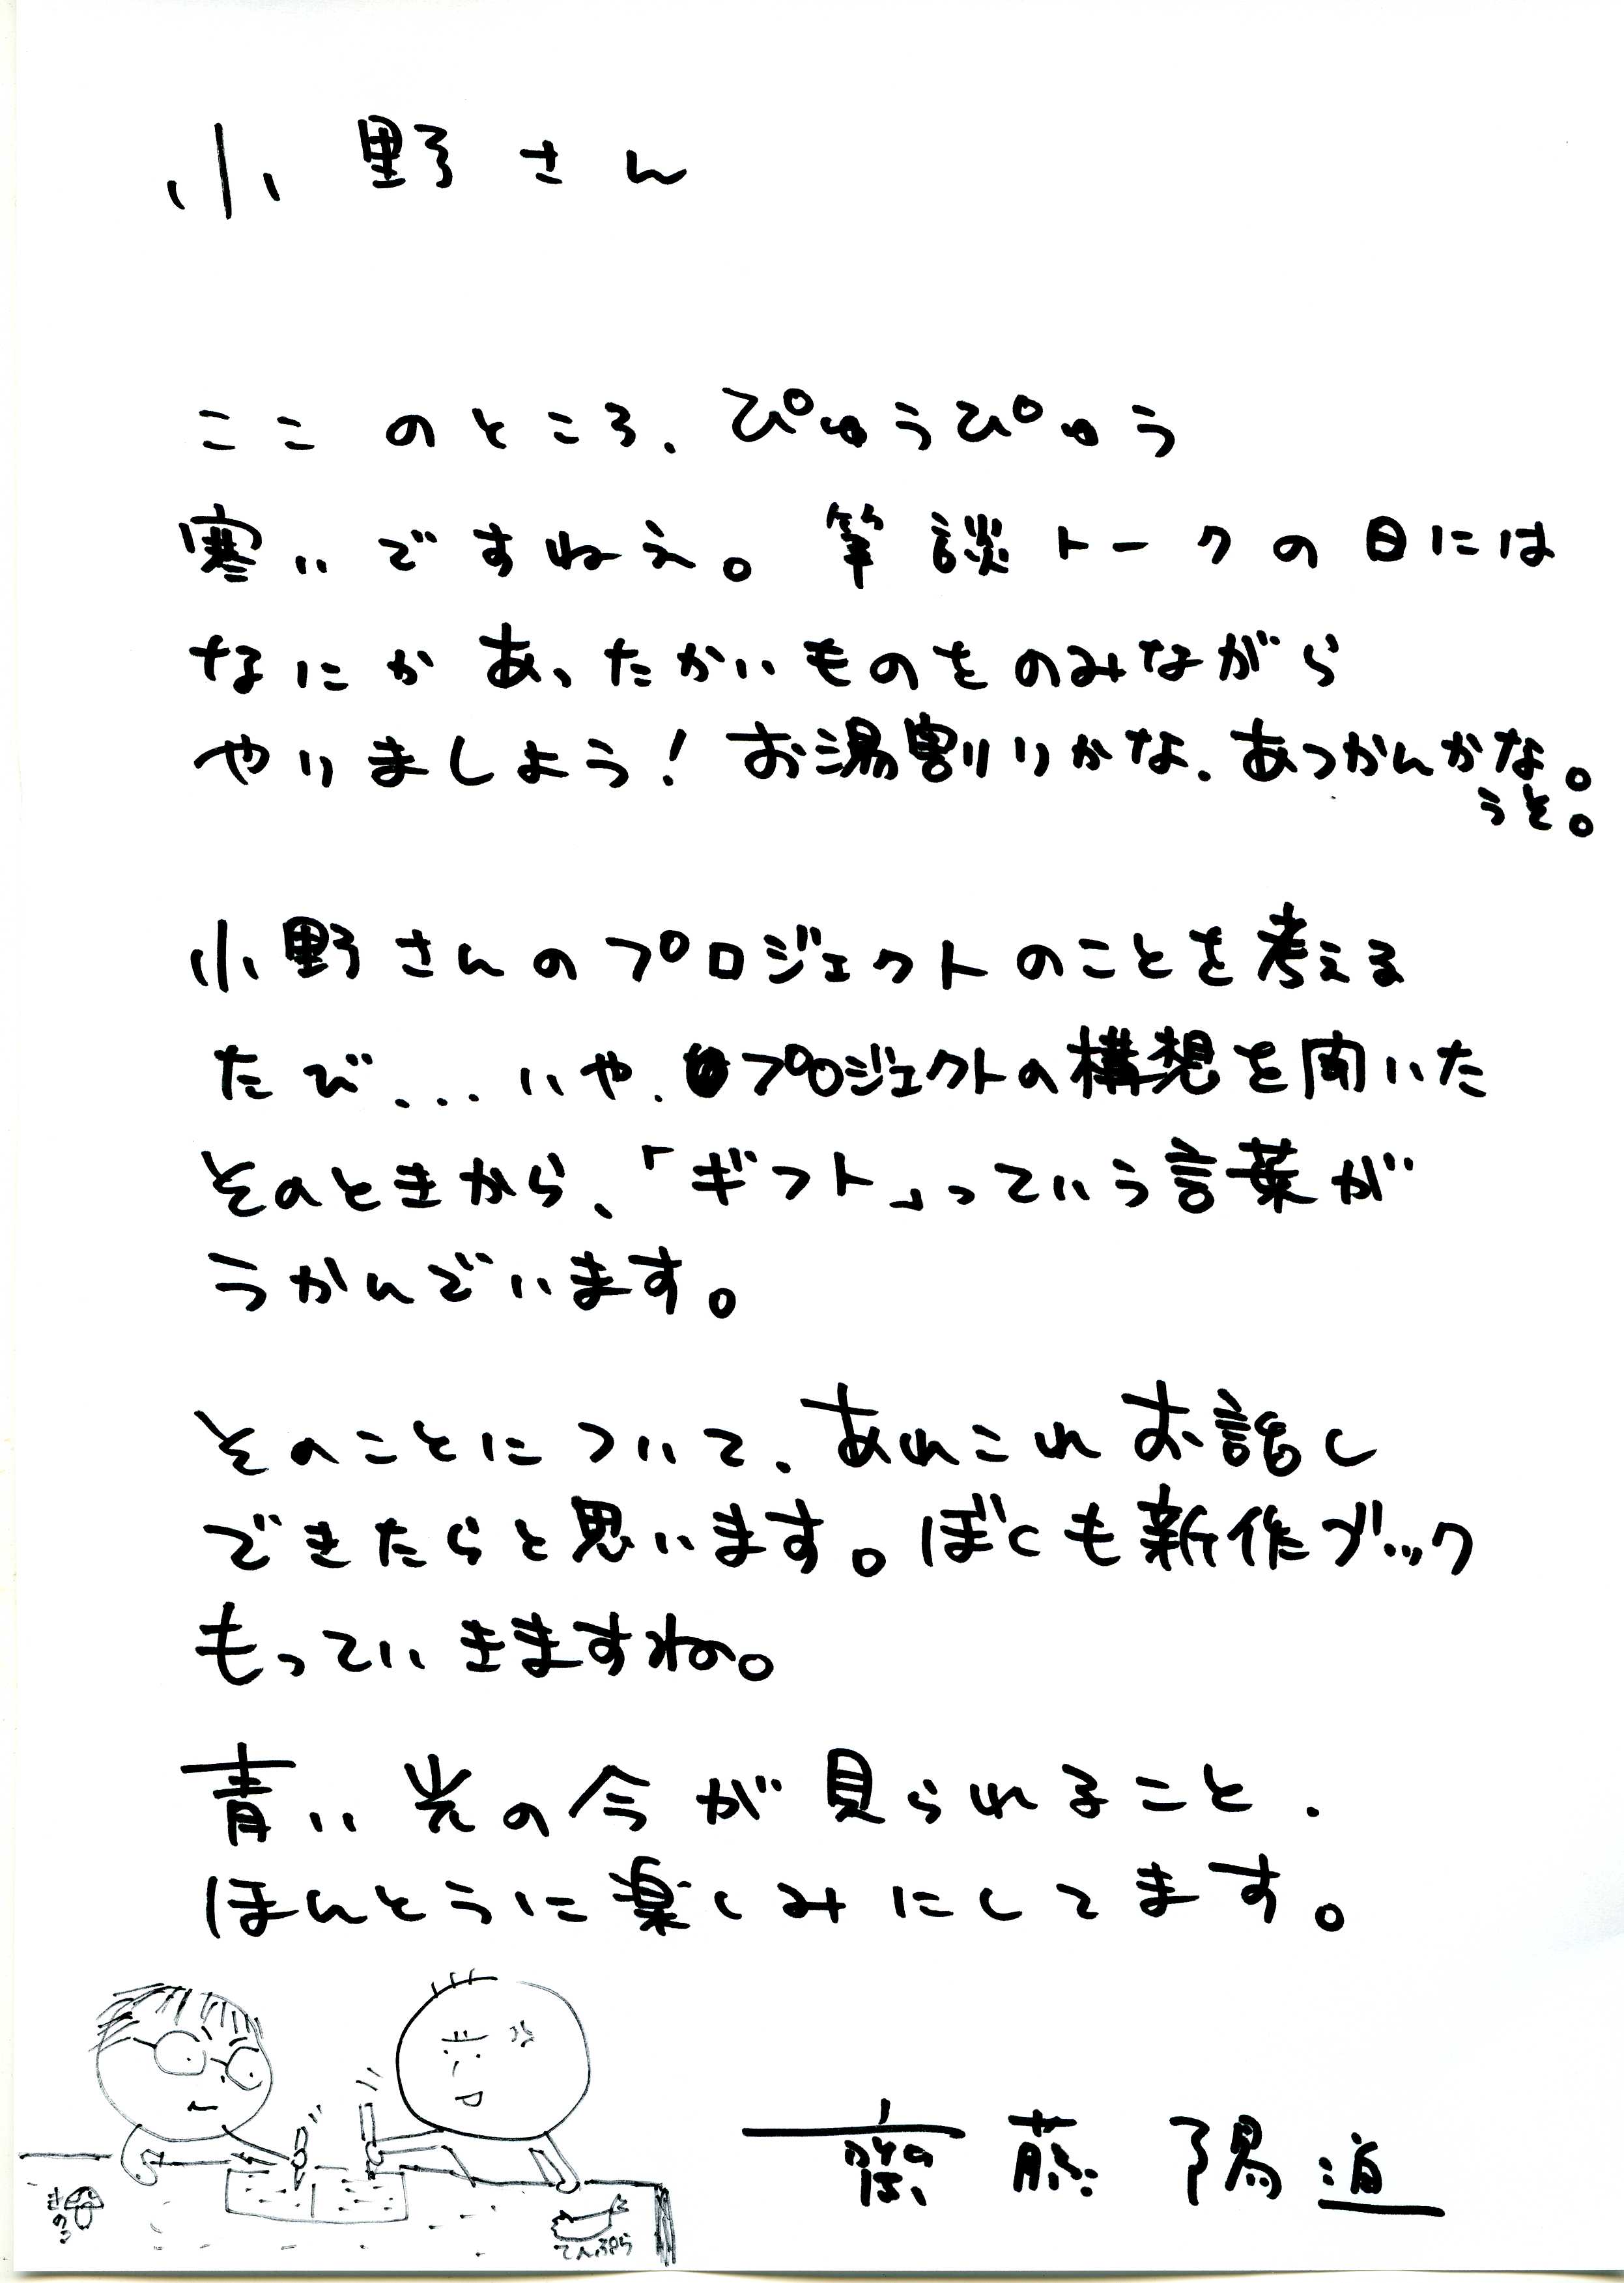 小野さん
ここのところ、ぴゅうぴゅう
寒いですねえ。筆談トークの日には
なにかあったかいものをのみながら
やりましょう！お湯割りかな、あつかんかな。
うそ。
小野さんのプロジェクトのことを考える
たび...いや、プロジェクトの構想を聞いた
そのときから、「ギフト」っていう言葉が
うかんでいます。
そのことについて、あれこれお話し
できたらと思います。ぼくも新作ブック
もっていきますね。
青い光の今が見られること、
ほんとうに楽しみにしてます。
齋藤陽道
きのこ
てんぷら